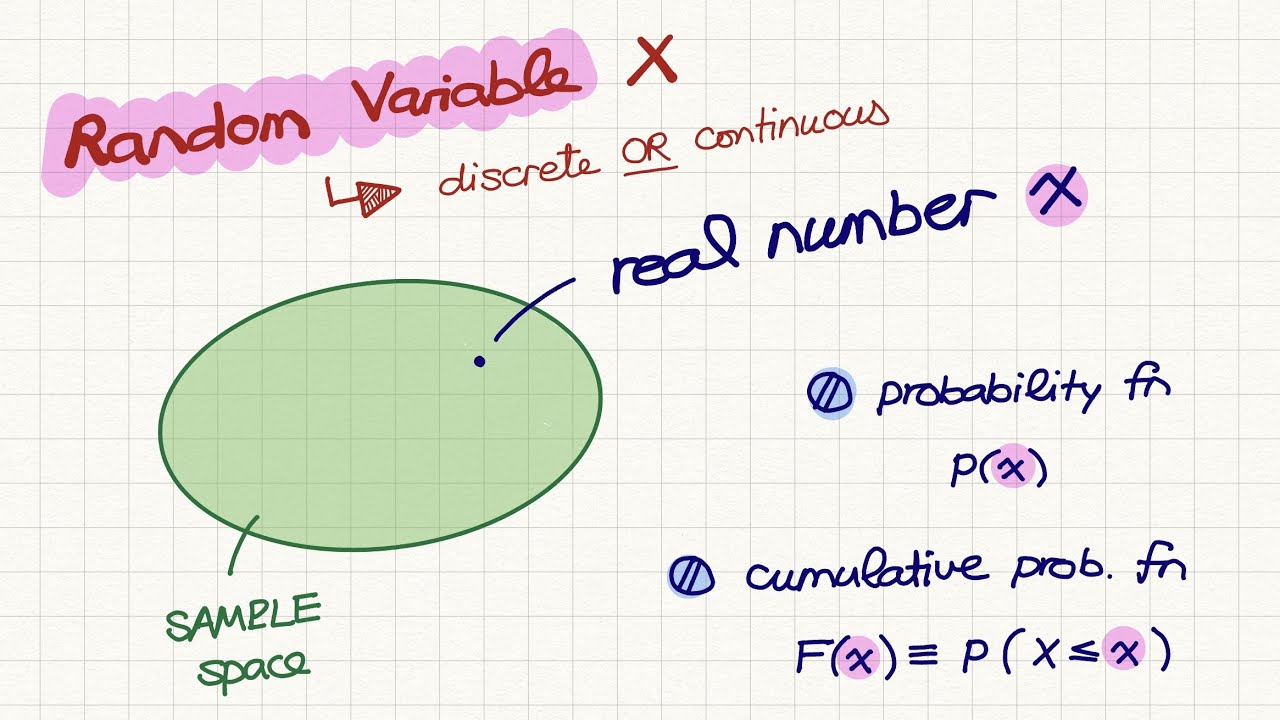 Random Variable X
discrete OR continuous
real number x
probability fn
p(x)
cumulative prob. fn
F(x) ≡ p(X ≤ x)
SAMPLE
space